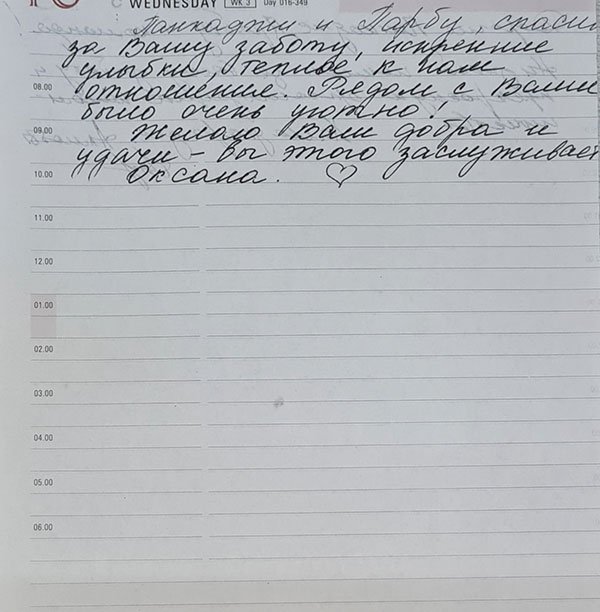 WEDNESDAY WK 3 Day 016-349
Панкаджи и Парбу, спаси
за Вашу заботу, искренние
улыбки, теплое к нам
08.00
отношение. Рядом с Вами
было очень уютно!
09.00
Желаю Вам добра и
удачи - Вы этого заслуживает
10.00
Оксана. ♡
11.00
12.00
01.00
02.00
03.00
04.00
05.00
06.00